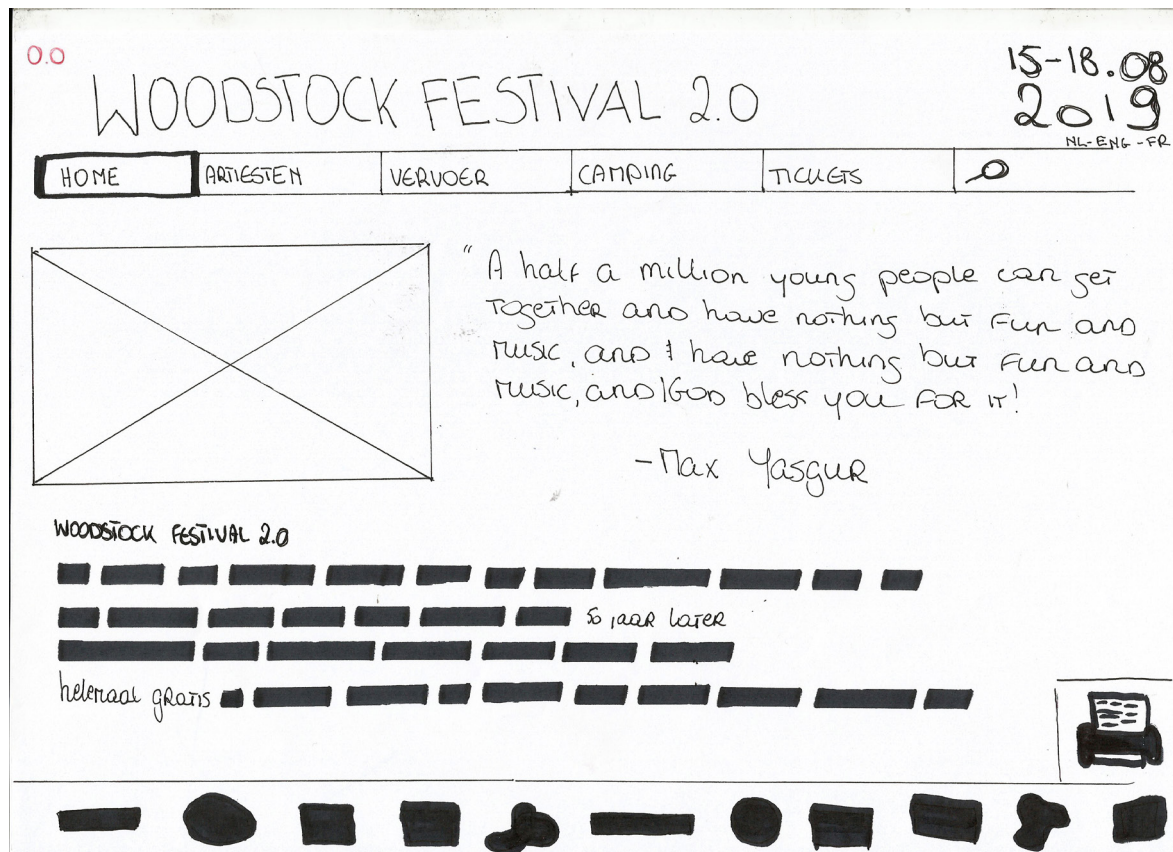 0.0
WOODSTOCK FESTIVAL 2.0
15-18.08
2019
NL-ENG-FR
HOME ARTIESTEN VERVOER CAMPING TICKETS
"A half a million young people can get
together and have nothing but fun and
music, and I have nothing but fun and
music, and God bless you for it!
-Max Yasgur
WOODSTOCK FESTIVAL 2.0
50 jaar later
helemaal gratis